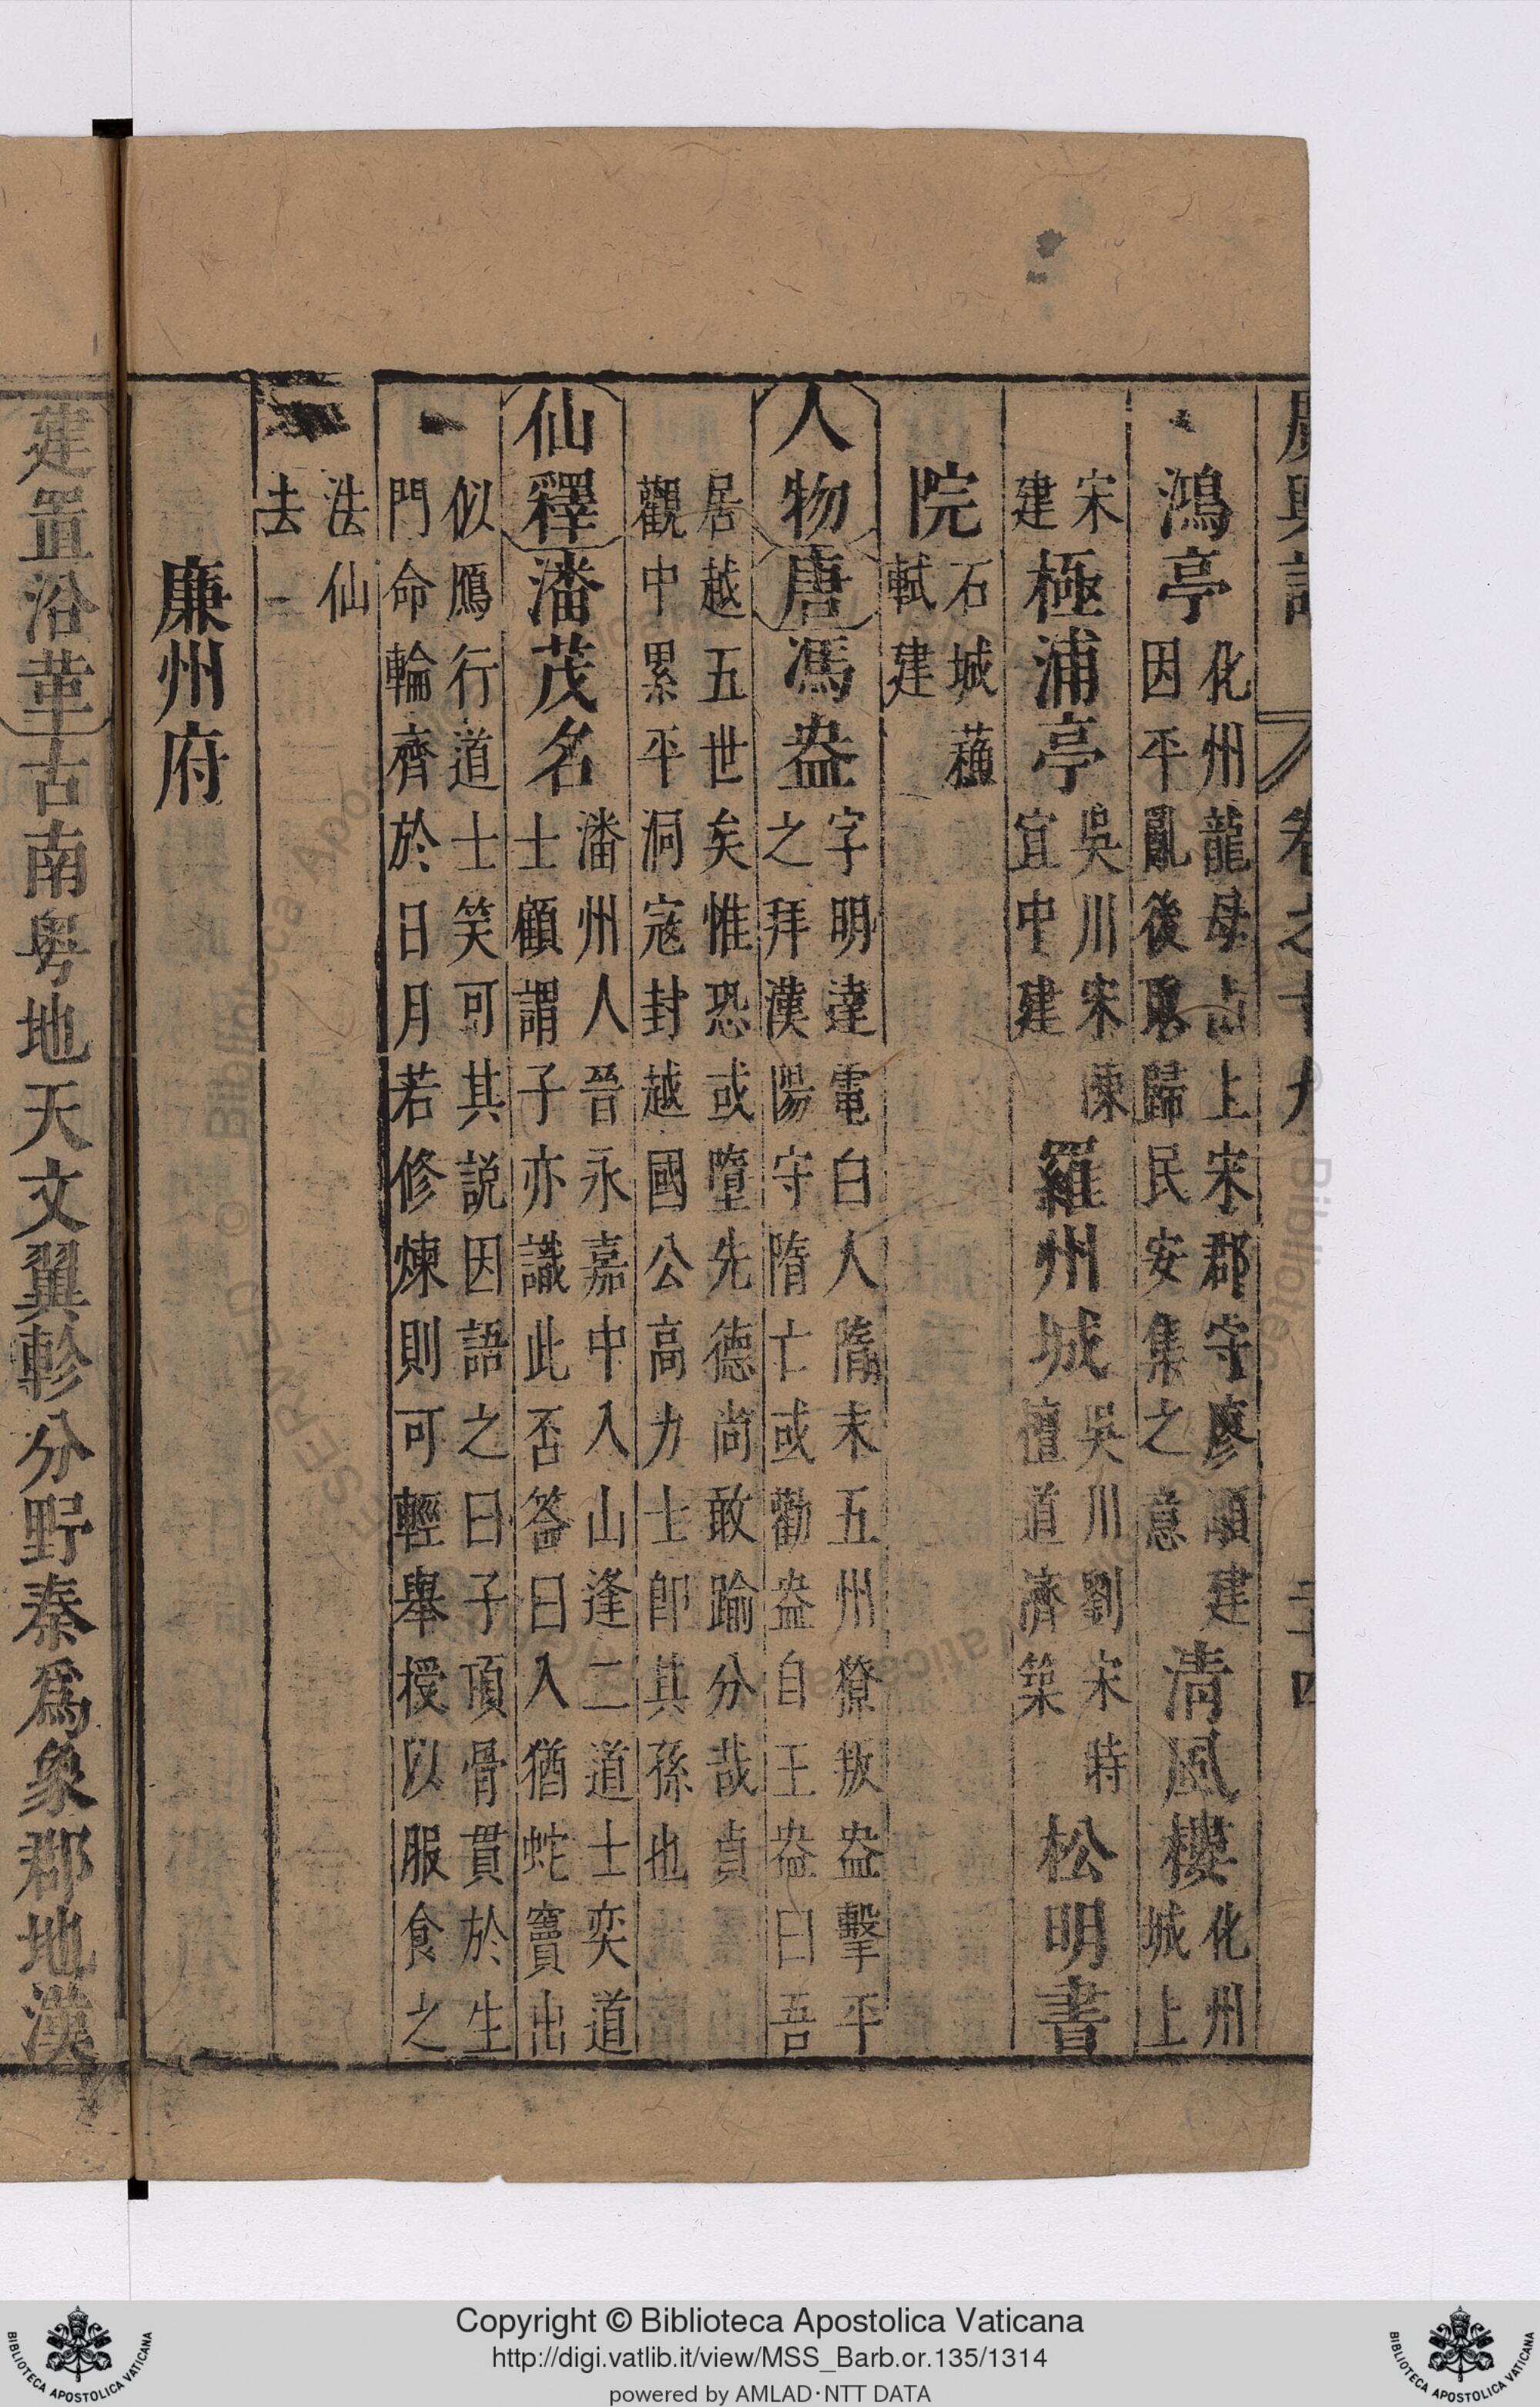 廣輿記 卷之十九 二十四
鴻亭 化州龍母山上宋郡守廖顒建因平亂後取歸民安集之意 清風樓 化州城上
宋建 極浦亭 吳川宋陳宜中建 羅州城 吳川劉宋時檀道濟築 松明書
院 石城蘇軾建
人物 唐 馮盎 字明達電白人隋末五州獠叛盎擊平之拜漢陽守隋亡或勸盎自王盎曰吾
居越五世矣惟恐或墮先德尚敢踰分哉貞觀中累平洞寇封越國公高力士即其孫也
仙釋 潘茂名 潘州人晉永嘉中入山逢二道士奕道士顧謂子亦識此否答曰入猶蛇竇出
似鴈行道士笑可其說因語之曰子頂骨貫於生門命輪齊於日月若修煉則可輕舉授以服食之
法仙去
廉州府
建置沿革 古南粵地天文翼軫分野秦爲象郡地漢
Copyright © Biblioteca Apostolica Vaticana
http://digi.vatlib.it/view/MSS_Barb.or.135/1314
powered by AMLAD·NTT DATA
BIBLIOTECA APOSTOLICA VATICANA
BIBLIOTECA APOSTOLICA VATICANA